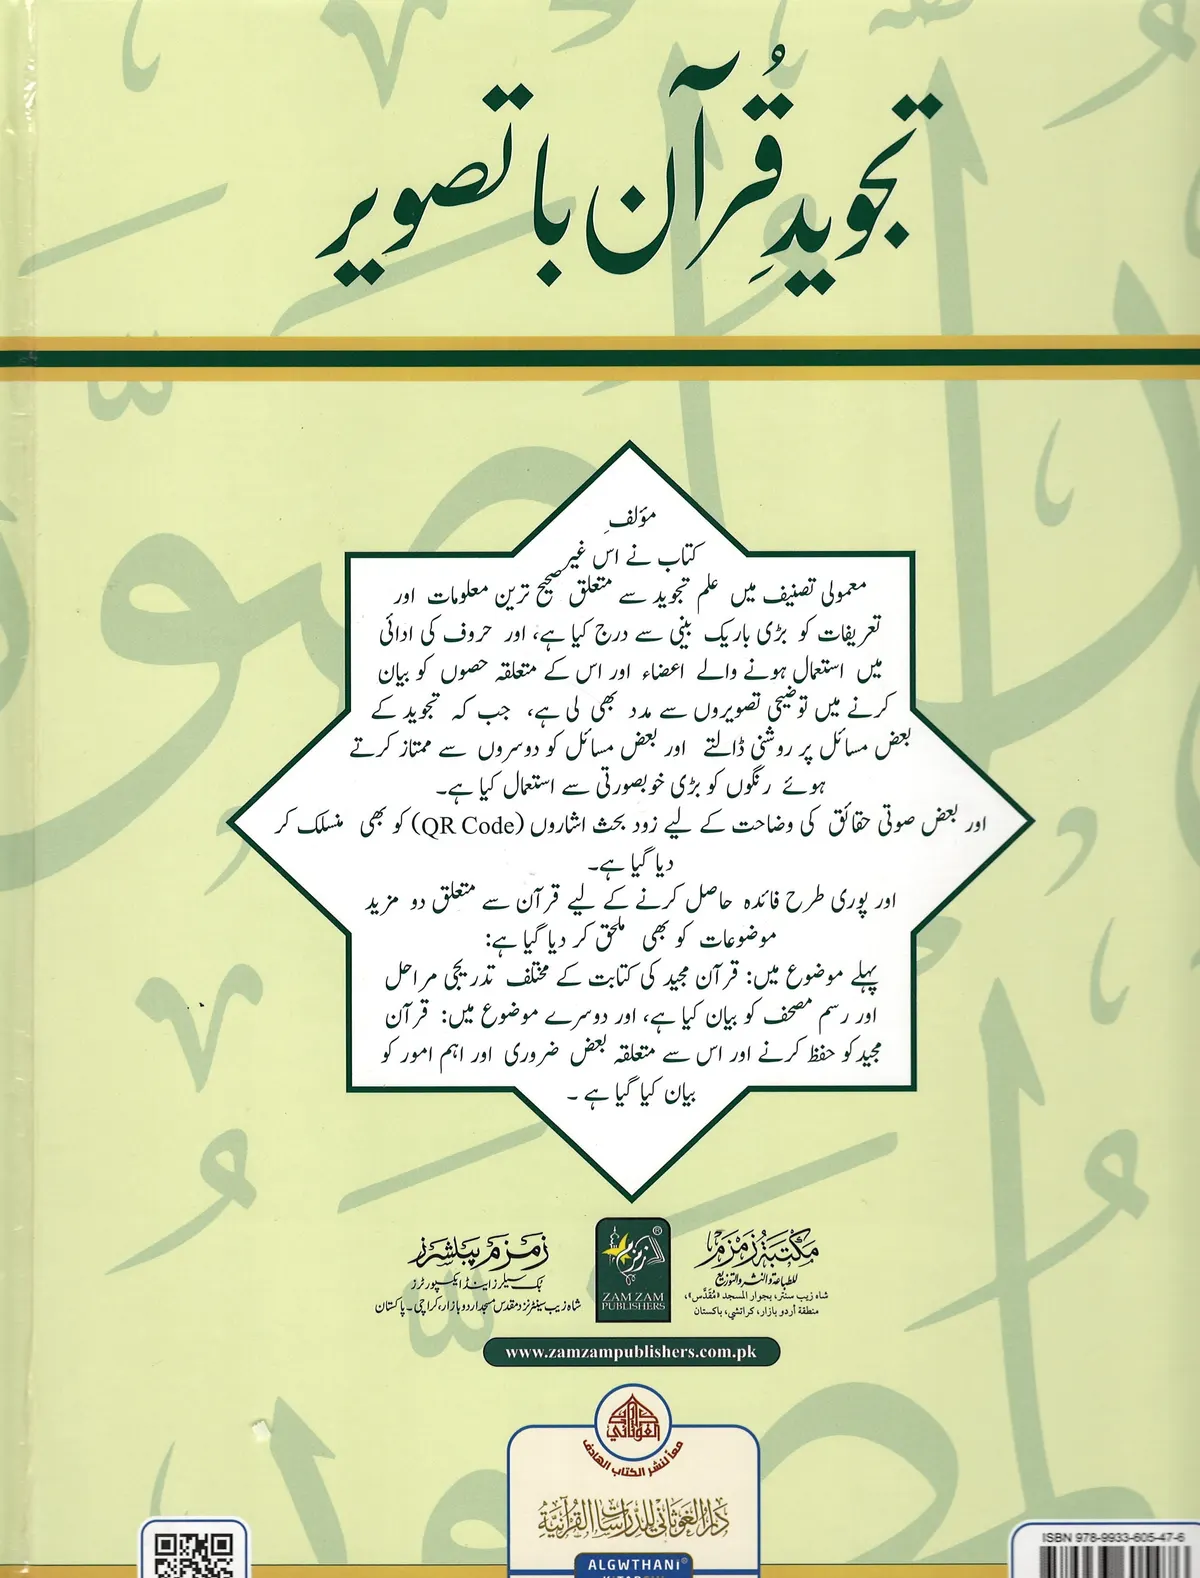 تجویدِ قُرآن باتصویر
مؤلفِ
کتاب نے اس غیر
معمولی تصنیف میں علم تجوید سے متعلق صحیح ترین معلومات اور
تعریفات کو بڑی باریک بینی سے درج کیا ہے، اور حروف کی ادائی
میں استعمال ہونے والے اعضاء اور اس کے متعلقہ حصوں کو بیان
کرنے میں توضیحی تصویروں سے مدد بھی لی ہے، جب کہ تجوید کے
بعض مسائل پر روشنی ڈالتے اور بعض مسائل کو دوسروں سے ممتاز کرتے
ہوئے رنگوں کو بڑی خوبصورتی سے استعمال کیا ہے۔
اور بعض صوتی حقائق کی وضاحت کے لیے زود بحث اشاروں (QR Code) کو بھی منسلک کر
دیا گیا ہے۔
اور پوری طرح فائدہ حاصل کرنے کے لیے قرآن سے متعلق دو مزید
موضوعات کو بھی ملحق کر دیا گیا ہے:
پہلے موضوع میں: قرآن مجید کی کتابت کے مختلف تدریجی مراحل
اور رسم مصحف کو بیان کیا ہے، اور دوسرے موضوع میں: قرآن
مجید کو حفظ کرنے اور اس سے متعلقہ بعض ضروری اور اہم امور کو
بیان کیا گیا ہے ۔
مكتبة زمزم
للطباعة والنشر والتوزيع
شاه زيب سنتر، بجوار المسجد «مُقَدَّس»،
منطقة أردو بازار، كراتشي، باكستان
زمزم
®
ZAM ZAM
PUBLISHERS
زمزم پبلشرز
بک سیلرز اینڈ ایکسپورٹرز
شاہ زیب سینٹر نزد مقدس مسجد اردو بازار، کراچی ۔ پاکستان
www.zamzampublishers.com.pk
الغوثاني
معاً لنشر الكتاب الهادف
دار الغوثاني للدراسات القرآنية
ALGWTHANI®
ISBN 978-9933-605-47-6